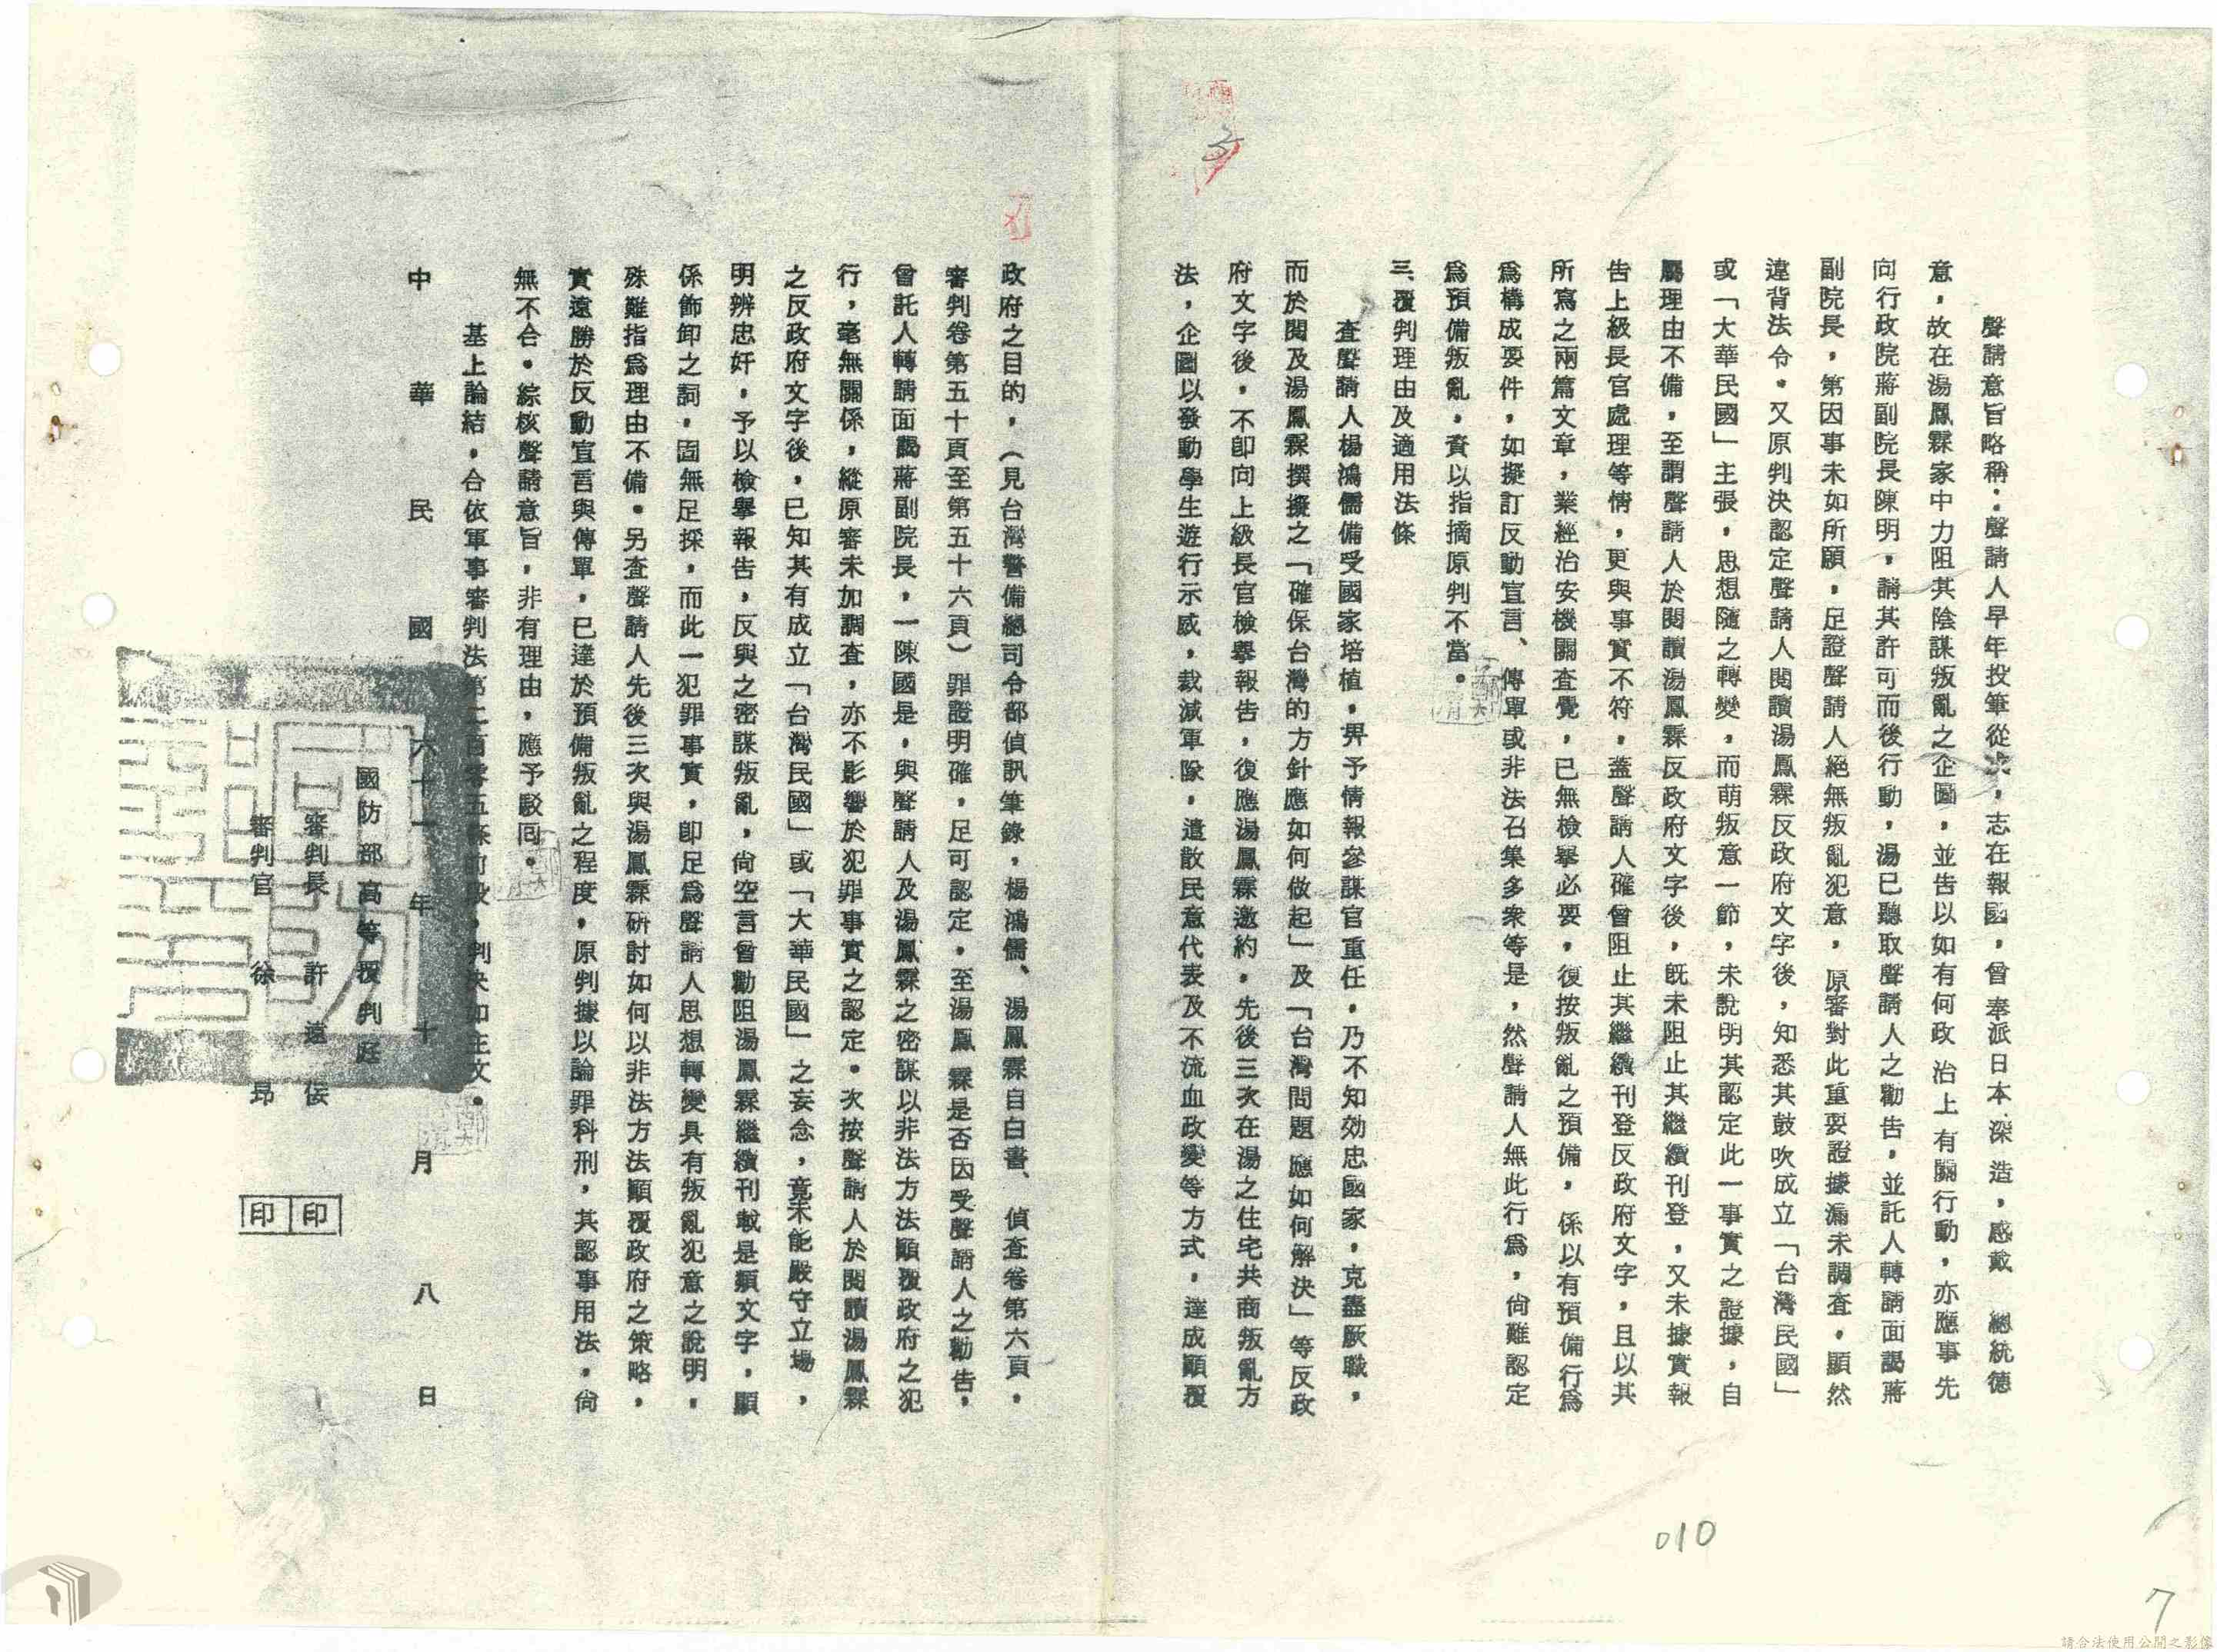 聲請意旨略稱：聲請人早年投筆從戎，志在報國，曾奉派日本深造，感戴　總統德
意，故在湯鳳霖家中力阻其陰謀叛亂之企圖，並告以如有何政治上有關行動，亦應事先
向行政院蔣副院長陳明，請其許可而後行動，湯已聽取聲請人之勸告，並託人轉請面謁蔣
副院長，第因事未如所願，足證聲請人絕無叛亂犯意，原審對此重要證據漏未調查，顯然
違背法令。又原判決認定聲請人閱讀湯鳳霖反政府文字後，知悉其鼓吹成立「台灣民國」
或「大華民國」主張，思想隨之轉變，而萌叛意一節，未說明其認定此一事實之證據，自
屬理由不備，至謂聲請人於閱讀湯鳳霖反政府文字後，既未阻止其繼續刊登，又未據實報
告上級長官處理等情，更與事實不符，蓋聲請人確曾阻止其繼續刊登反政府文字，且以其
所寫之兩篇文章，業經治安機關查覺，已無檢舉必要，復按叛亂之預備，係以有預備行為
為構成要件，如擬訂反動宣言、傳單或非法召集多衆等是，然聲請人無此行為，尚難認定
為預備叛亂，資以指摘原判不當。
三、覆判理由及適用法條
查聲請人楊鴻儒備受國家培植，畀予情報參謀官重任，乃不知効忠國家，克盡厥職，
而於閱及湯鳳霖撰擬之「確保台灣的方針應如何做起」及「台灣問題應如何解決」等反政
府文字後，不卽向上級長官檢舉報告，復應湯鳳霖邀約，先後三次在湯之住宅共商叛亂方
法，企圖以發動學生遊行示威，裁減軍隊，遣散民意代表及不流血政變等方式，達成顚覆
政府之目的，（見台灣警備總司令部偵訊筆錄，楊鴻儒、湯鳳霖自白書、偵查卷第六頁，
審判卷第五十頁至第五十六頁）罪證明確，足可認定，至湯鳳霖是否因受聲請人之勸告，
曾託人轉請面謁蔣副院長，一陳國是，與聲請人及湯鳳霖之密謀以非法方法顚覆政府之犯
行，毫無關係，縱原審未加調查，亦不影響於犯罪事實之認定。次按聲請人於閱讀湯鳳霖
之反政府文字後，已知其有成立「台灣民國」或「大華民國」之妄念，竟未能嚴守立場，
明辨忠奸，予以檢舉報告，反與之密謀叛亂，尚空言曾勸阻湯鳳霖繼續刊載是類文字，顯
係飾卸之詞，固無足採，而此一犯罪事實，卽足為聲請人思想轉變具有叛亂犯意之說明，
殊難指為理由不備。另查聲請人先後三次與湯鳳霖研討如何以非法方法顚覆政府之策略，
實遠勝於反動宣言與傳單，已達於預備叛亂之程度，原判據以論罪科刑，其認事用法，尚
無不合。綜核聲請意旨，非有理由，應予駁回。
基上論結，合依軍事審判法第二百零五條前段，判決如主文。
中華民國六十一年十月八日
國防部高等覆判庭
審判長　許遠佞
審判官　徐昂
印
印
010
7
請合法使用公開之影像